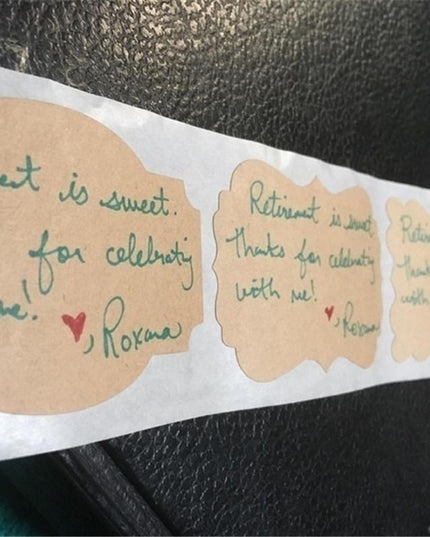 ent is sweet.
for celebrating
me!
♥, Roxana
Retirement is sweet
Thanks for celebrating
with me!
♥, Roxana
Retire
Thanks
with